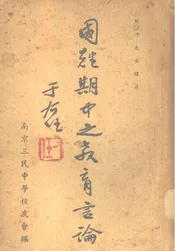 國難期中之教育言論
于右任
南京三民中學校友會編